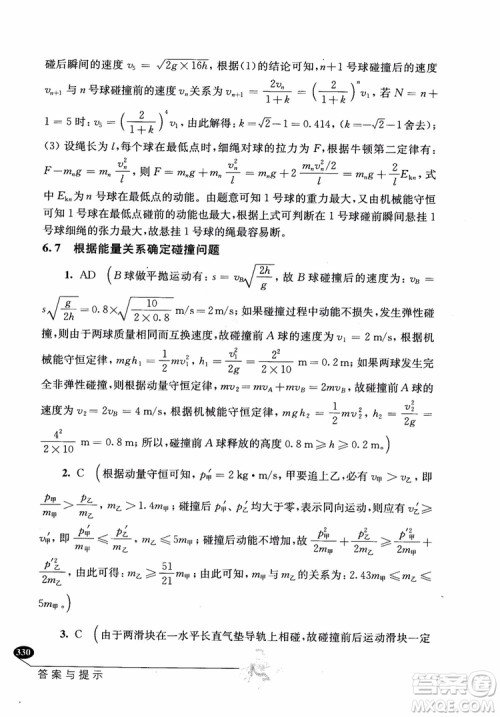 碰后瞬间的速度 v₅ = √(2g×16h)，根据(1)的结论可知，n+1 号球碰撞后的速度
vₙ₊₁ 与 n 号球碰撞前的速度关系为 vₙ₊₁ = 2vₙ/(1+k) = (2/(1+k))ⁿ v₁，若 N = n+
1 = 5 时：v₅ = (2/(1+k))⁴ v₁，由此解得：k = √2 − 1 = 0.414，(k = −2.414 舍去)；
(3) 设绳长为 l，每个球在最低点时，细绳对球的拉力为 F，根据牛顿第二定律有：
F − mₙg = mₙ vₙ²/l，则 F = mₙg + mₙ vₙ²/l = mₙg + 2 (mₙvₙ²/2)/l = mₙg + 2 Eₖₙ/l，
式中 Eₖₙ 为 n 号球在最低点的动能。由题意可知 1 号球的重力最大，又由机械能守恒
可知 1 号球在最低点碰前的动能也最大，根据上式可判断在 1 号球碰前瞬间悬挂 1
号球细绳的张力最大，故悬挂 1 号球的绳最容易断。
6.7 根据能量关系确定碰撞问题
1. AD (B 球做平抛运动有：s = v_B √(2h/g)，故 B 球碰撞后的速度为 v_B =
s√(g/2h) = 0.8 × √(10/(2×0.8)) m/s = 2 m/s，由于碰撞中动能不损失，发生弹性碰
撞，由于两球质量相同而发生速度交换，故碰撞前 A 球的速度为 v₁ = 2 m/s，由机械
能守恒定律，mgh₁ = ½mv₁²，h₁ = v₁²/2g = 2²/(2×10) m = 0.2 m；如果两球发生完
全非弹性碰撞，由动量守恒定律，mv₂ = mv_B + mv_B，解得碰撞前 A 球的速度为
v₂ = 2v_B = 2 × 2 m/s = 4 m/s，由机械能守恒定律，mgh₂ = ½mv₂²，h₂ = v₂²/2g =
4²/(2×10) m = 0.8 m，所以，碰撞前 A 球释放的高度为 0.2 m ≤ h ≤ 0.8 m。)
2. C (根据动量守恒可知，p′甲 = 2 kg·m/s，甲要追上乙，必有 v甲 > v乙，即
p甲/m甲 > p乙/m乙，m乙 > 1.4m甲，碰撞后，p′甲、p′乙 均大于零，表示同向运动，故应有 v′乙 ≥
v′甲，即 p′甲/m甲 ≤ p′乙/m乙，则 m乙 ≤ 5m甲。碰撞后动能不增加，故有 p甲²/2m甲 + p乙²/2m乙 ≥ p′甲²/2m甲 +
p′乙²/2m乙，由此可知：m乙/m甲 ≥ 51/21，m乙 ≥ 51/21 m甲，故有：51/21 m甲 ≤ m乙 ≤ 5m甲。)
3. C (由于两滑块在一水平长直气垫导轨上相碰，故碰撞前后两滑块一定
330
答案与提示